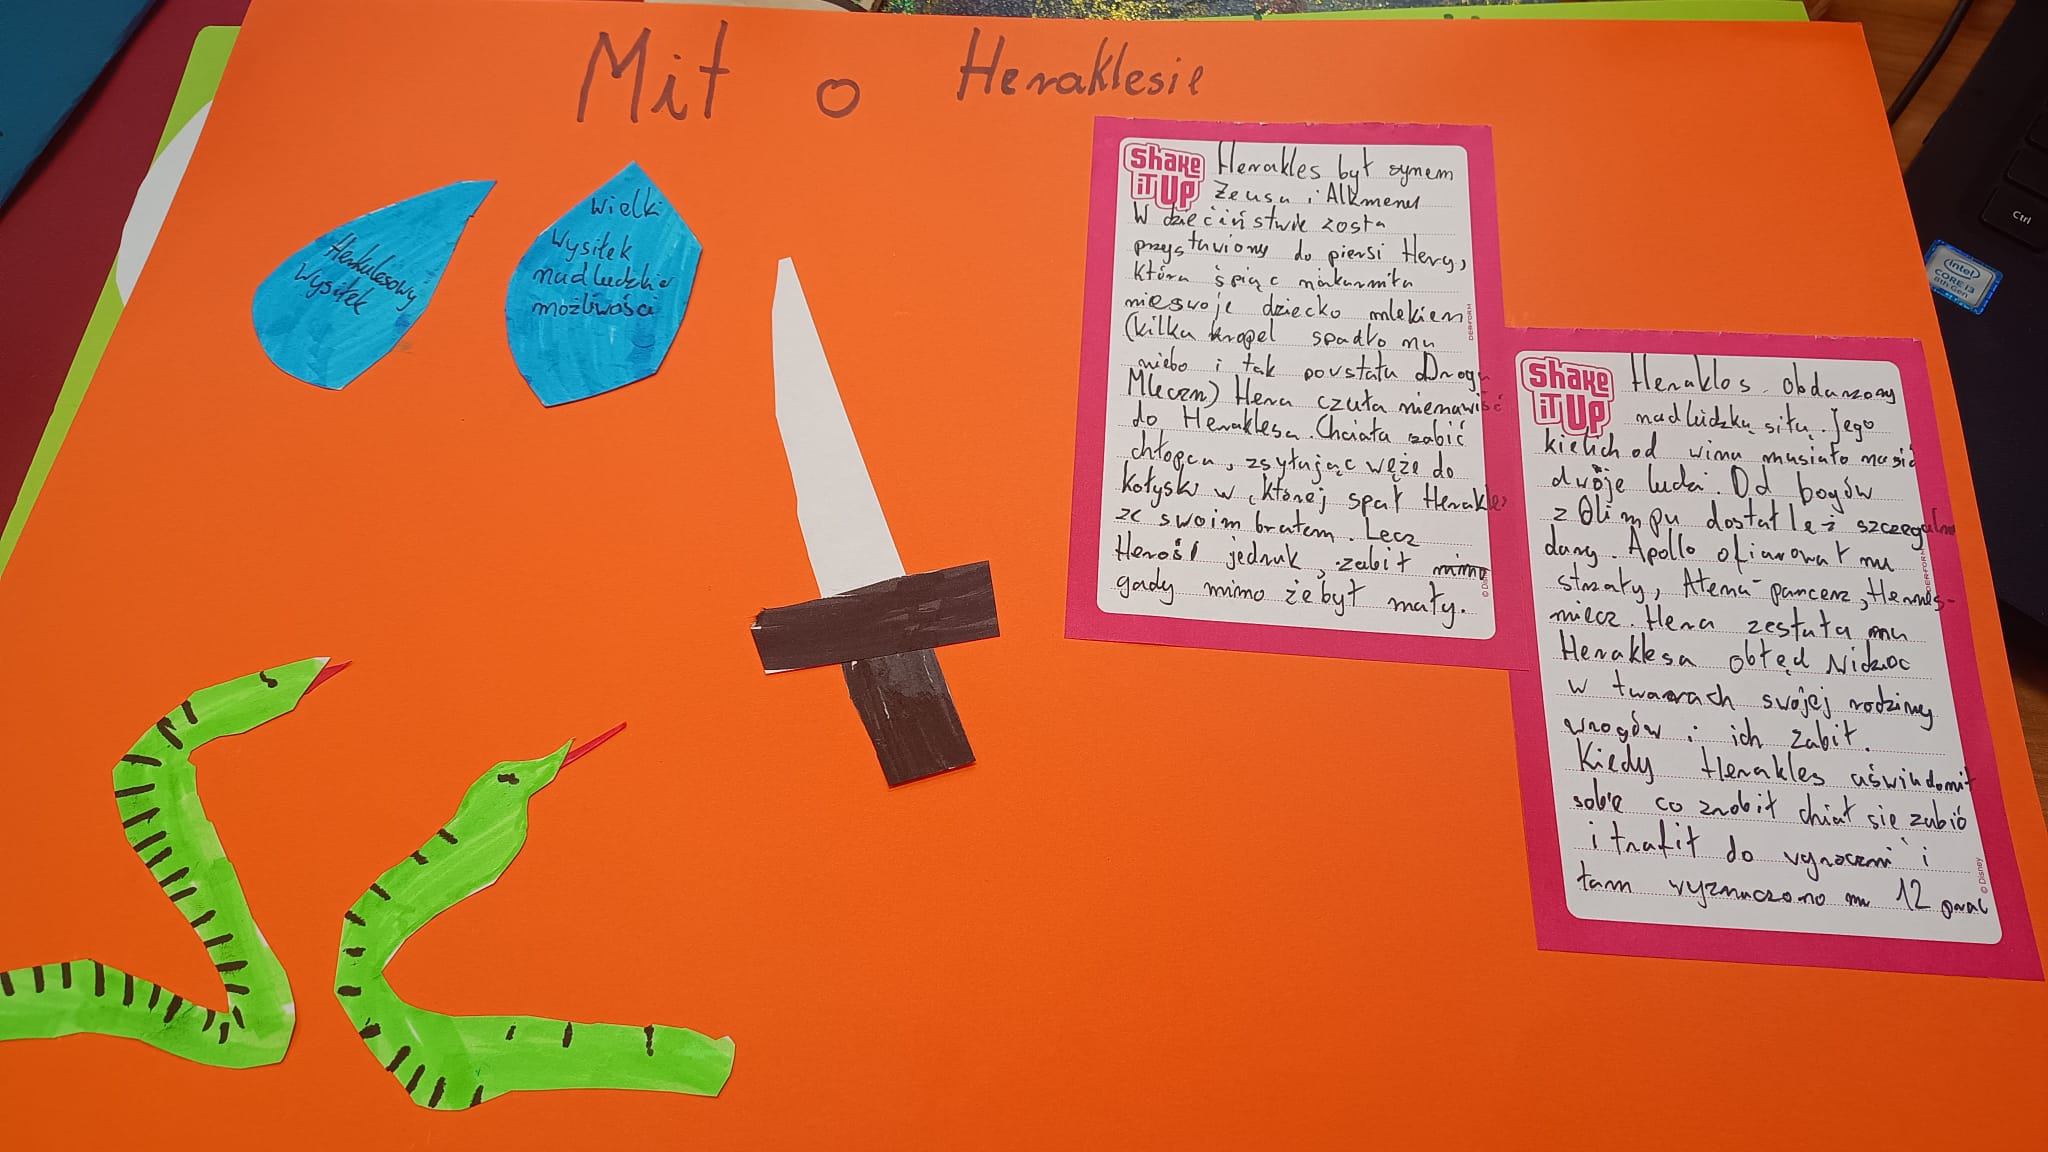 Mit o Heraklesie
Herkulesowy
Wysiłek
Wielki
Wysiłek
nadludzkie
możliwości
Shake
it Up
Herakles był synem
Zeusa i Alkmeny
W dzieciństwie zosta
przystawiony do piersi Hery,
która śpiąc nakarmiła
nieswoje dziecko mlekiem
(kilka kropel spadło na
niebo i tak powstała Droga
Mleczn) Hera czuła nienawiść
do Heraklesa. Chciała zabić
chłopca, zsyłając węże do
kołysk w której spał Herakles
ze swoim bratem. Lecz
Heroś jednak, zabił mimo
gady mimo że był mały.
DERFORM
© Disney
Shake
it Up
Heraklos obdarzony
nadludzką siłą. Jego
kielich od wina musiało nosić
dwóje ludzi. Od bogów
z Olimpu dostał też szczegulne
dary. Apollo ofiarował mu
strzały, Atena - pancerz, Hermes -
miecz. Hera zesłała na
Heraklesa obłęd Widząc
w twarzach swojej rodziny
wrogów i ich zabił.
Kiedy Herakles uświadomił
sobie co zrobił chiał się zabić
i trafił do wyroczni i
tam wyznaczono mu 12 prac
DERFORM
© Disney
Ctrl
intel
CORE i3
8th Gen